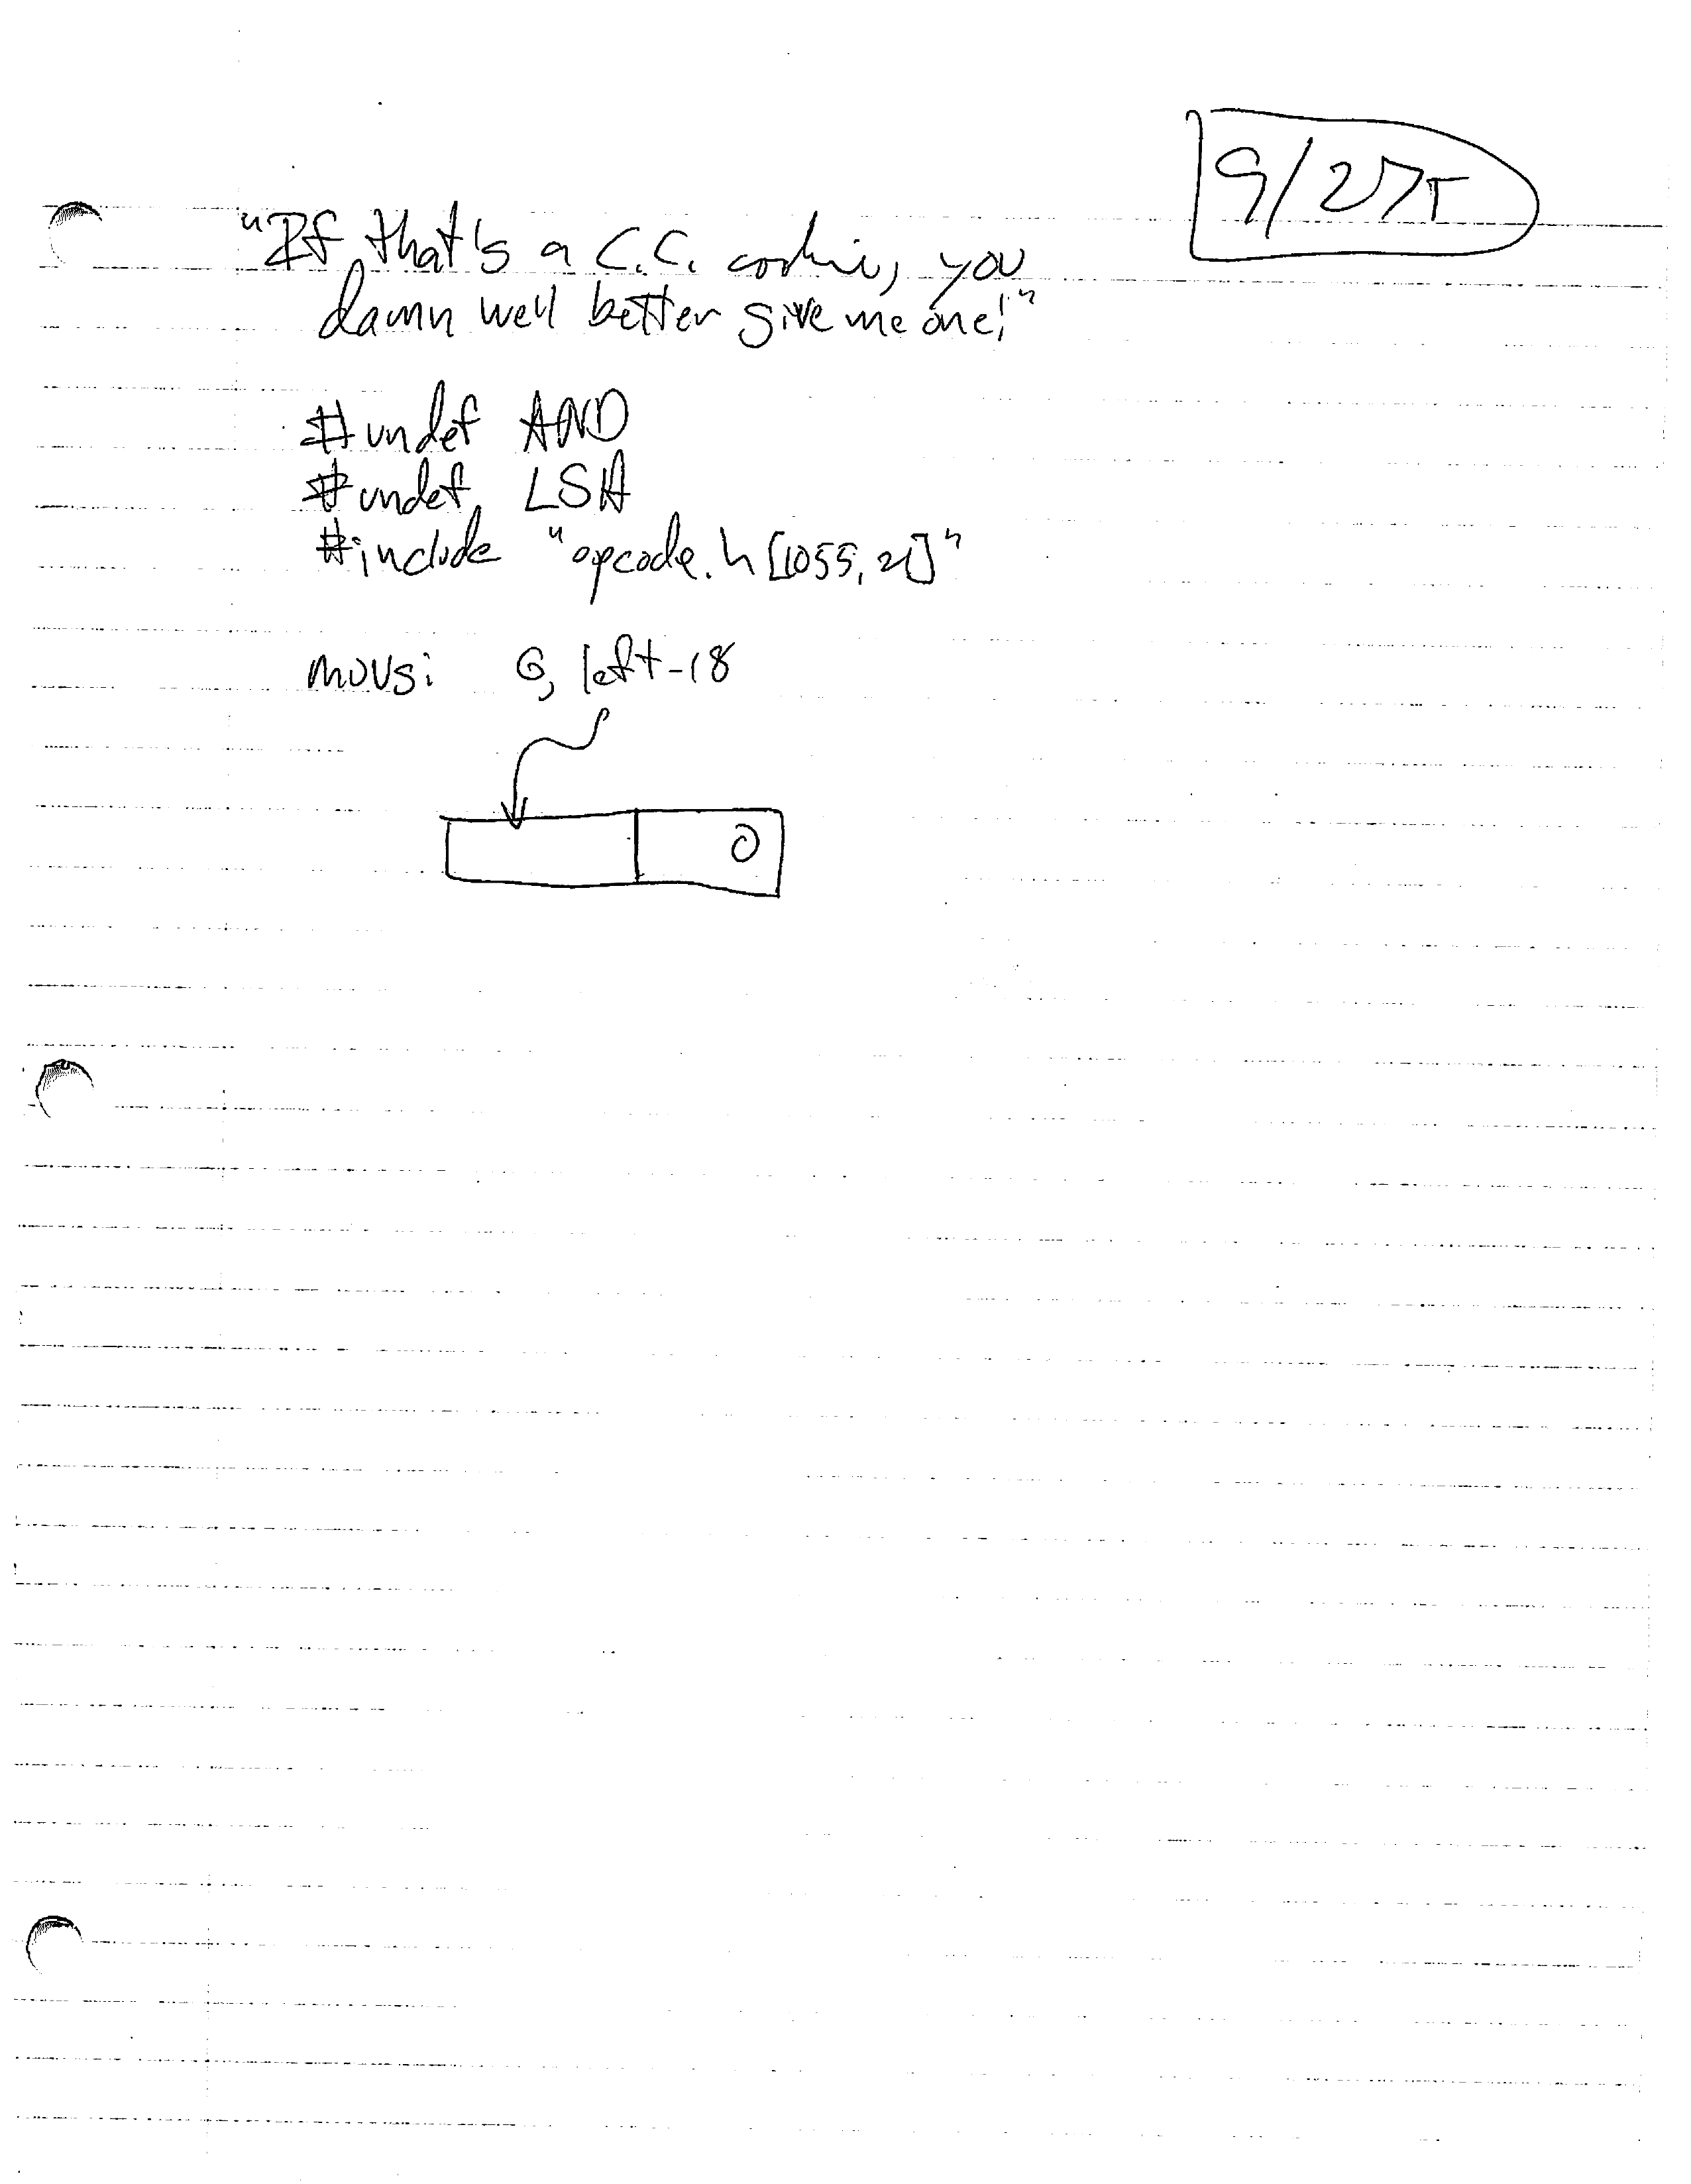 9/27T
"If that's a C.C. cookie, you
damn well better give me one!"
#undef AND
#undef LSH
#include "opcode.h[1055,21]"
movsi 6, left-18
0